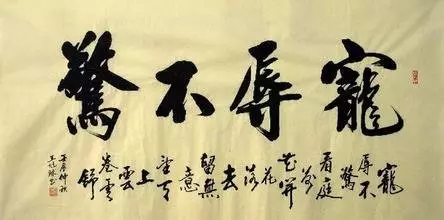 寵辱不驚
寵
辱不驚
看庭前
花開
花落
去
留無意
望天
上雲
卷雲
舒
壬辰仲秋